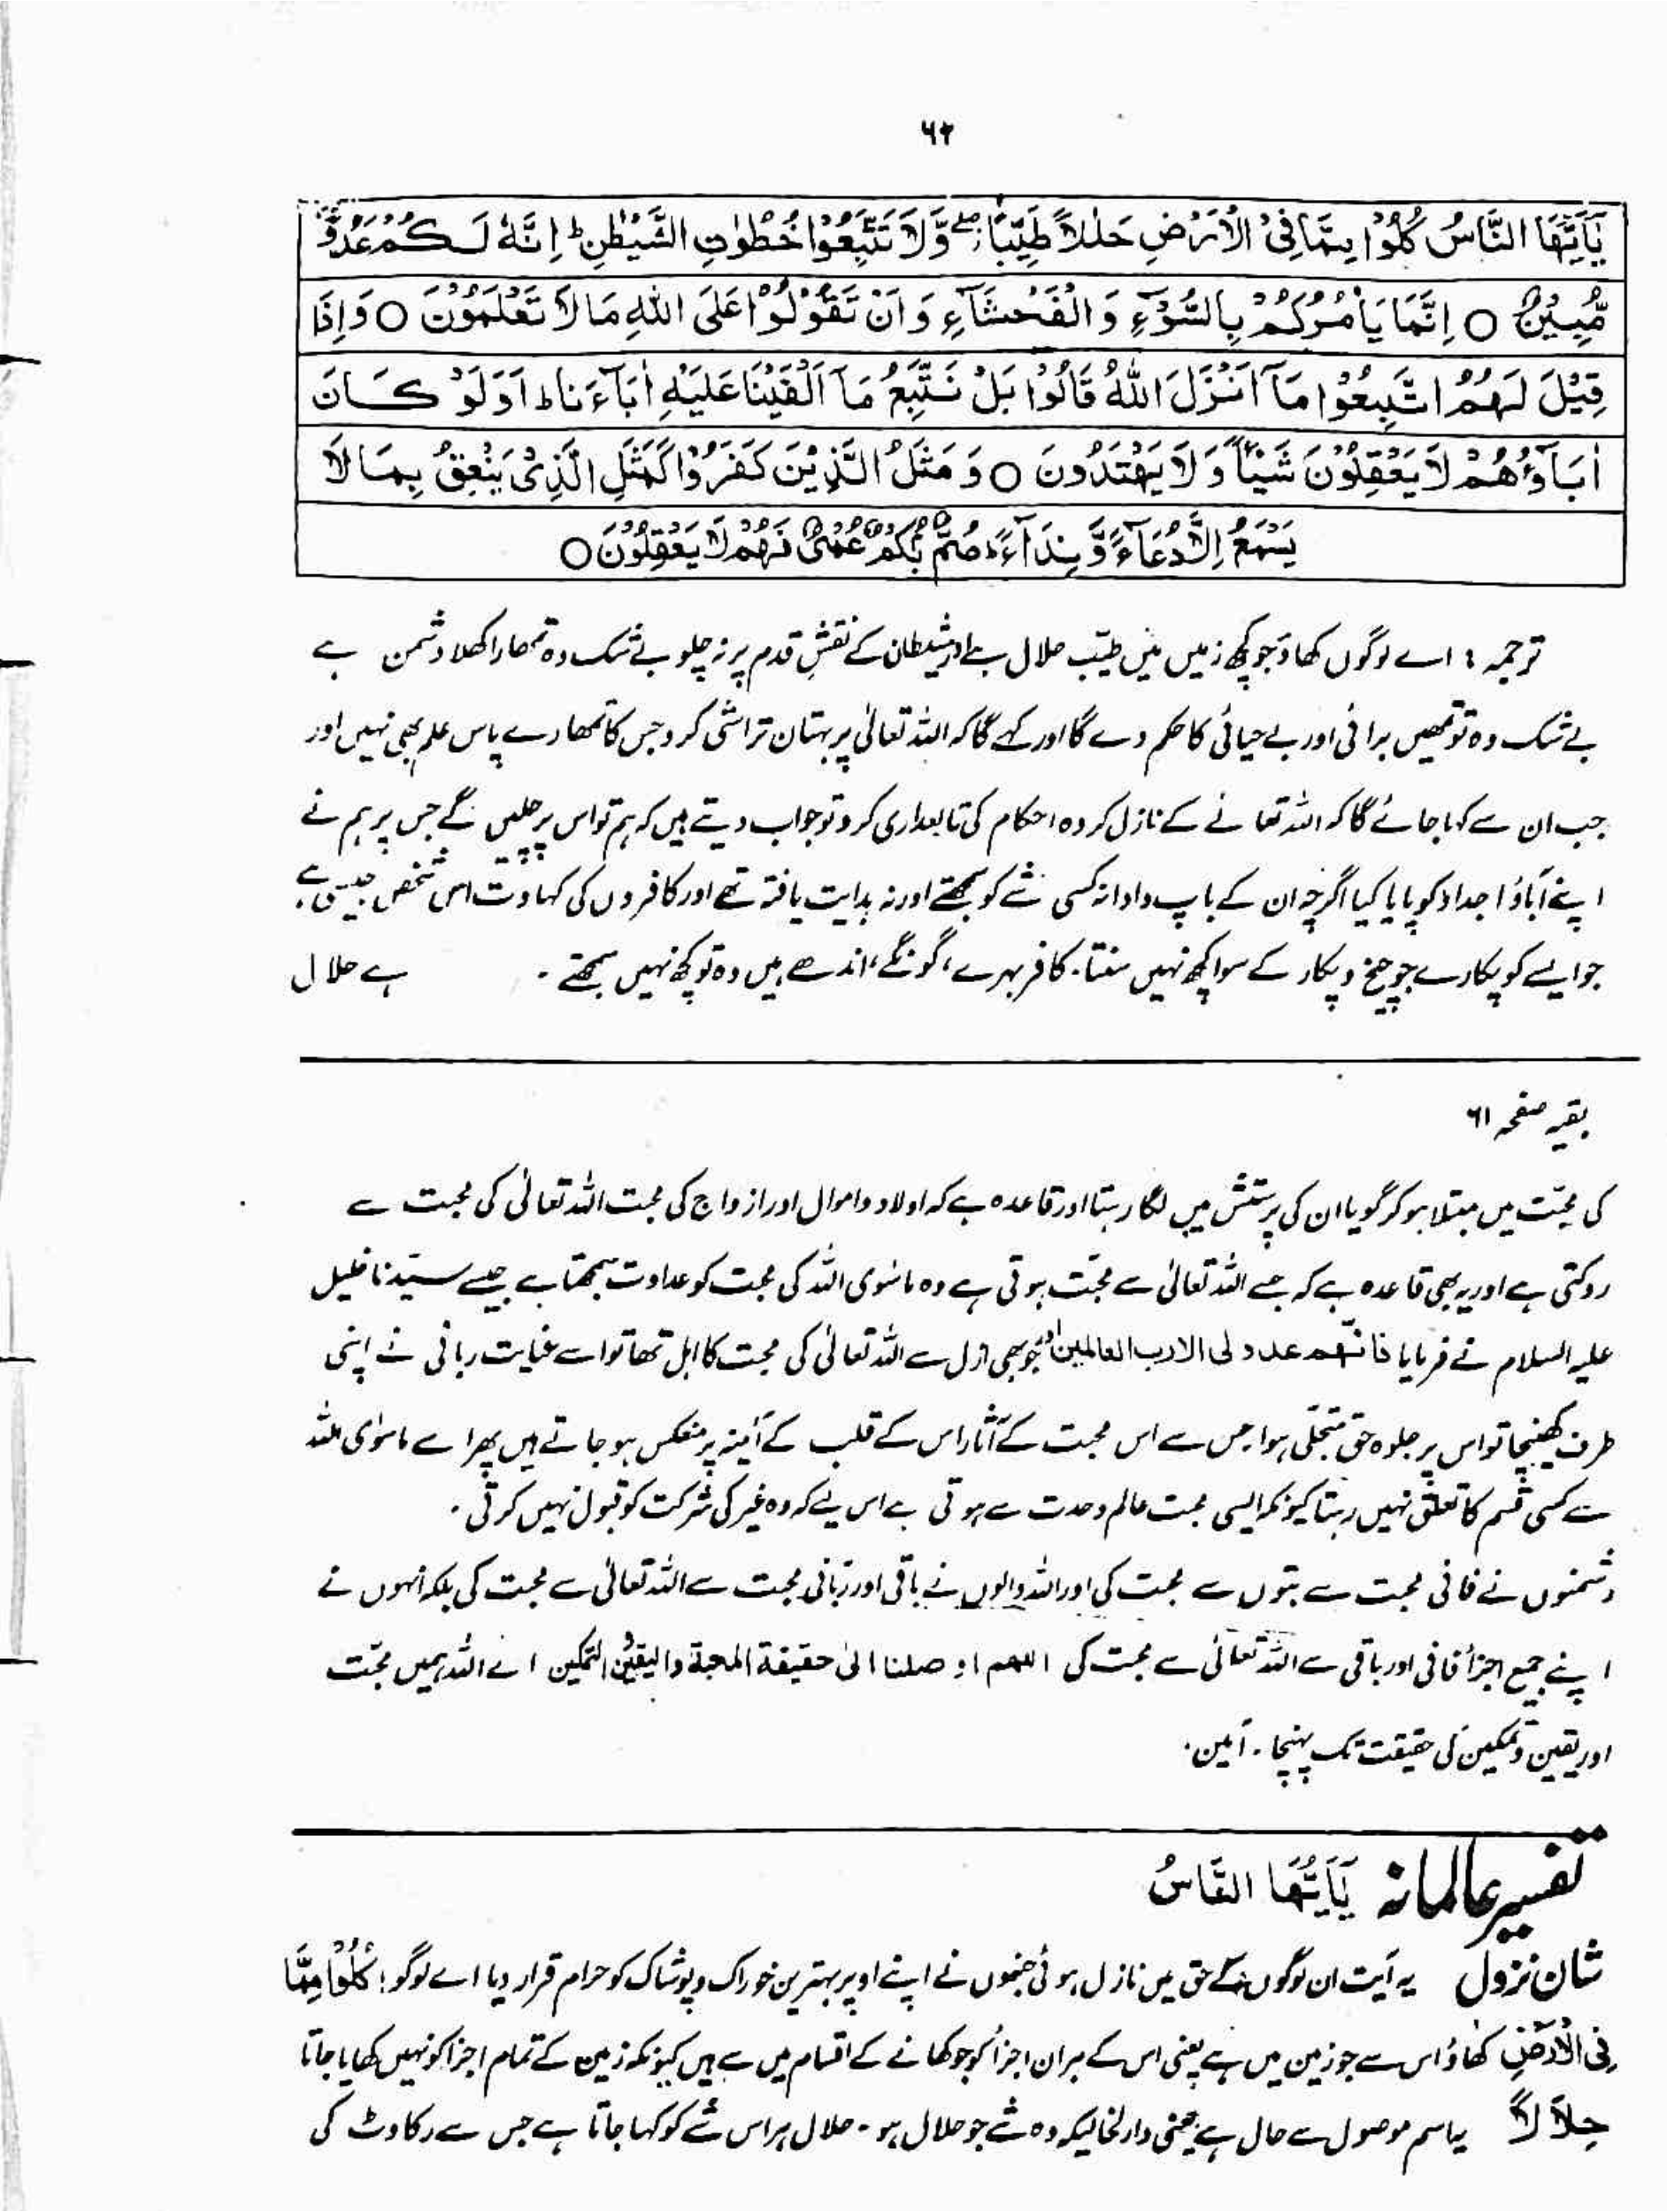 ۶۲
يٰٓاَيُّهَا النَّاسُ كُلُوْا مِمَّا فِى الْاَرْضِ حَلٰلًا طَيِّبًا ۖ وَّلَا تَتَّبِعُوْا خُطُوٰتِ الشَّيْطٰنِ ؕ اِنَّهٗ لَـكُمْ عَدُوٌّ
مُّبِيْنٌ ○ اِنَّمَا يَاْمُرُكُمْ بِالسُّوْٓءِ وَ الْفَحْشَآءِ وَ اَنْ تَقُوْلُوْا عَلَى اللّٰهِ مَا لَا تَعْلَمُوْنَ ○ وَ اِذَا
قِيْلَ لَهُمُ اتَّبِعُوْا مَآ اَنْزَلَ اللّٰهُ قَالُوْا بَلْ نَتَّبِعُ مَآ اَلْفَيْنَا عَلَيْهِ اٰبَآءَنَا ؕ اَوَلَوْ كَـانَ
اٰبَآؤُهُمْ لَا يَعْقِلُوْنَ شَيْئًا وَّ لَا يَهْتَدُوْنَ ○ وَ مَثَلُ الَّذِيْنَ كَفَرُوْا كَمَثَلِ الَّذِىْ يَنْعِقُ بِمَا لَا
يَسْمَعُ اِلَّا دُعَآءً وَّ نِدَآءً ؕ صُمٌّۢ بُكْمٌ عُمْىٌ فَهُمْ لَا يَعْقِلُوْنَ ○
ترجمہ : اے لوگوں کھاؤ جو کچھ زمیں میں طیّب حلال ہے اور شیطان کے نقشِ قدم پر نہ چلو بے شک وہ تمھارا کھلا دشمن ہے
بے شک وہ تو تمھیں برائی اور بے حیائی کا حکم دے گا اور کہے گا کہ اللہ تعالیٰ پر بہتان تراشی کرو جس کا تمھارے پاس علم بھی نہیں اور
جب ان سے کہا جائے گا کہ اللہ تعا نے کے نازل کردہ احکام کی تابعداری کرو تو جواب دیتے ہیں کہ ہم تو اس پر چلیں گے جس پر ہم نے
اپنے آباؤ اجداد کو پایا کیا اگرچہ ان کے باپ دادا نہ کسی شے کو سمجھتے اور نہ ہدایت یافتہ تھے اور کافروں کی کہاوت اس شخص جیسی ہے
جو ایسے کو پکارے جو چیخ و پکار کے سوا کچھ نہیں سنتا۔ کافر بہرے، گونگے، اندھے ہیں وہ تو کچھ نہیں سمجھتے ۔ ہے حلال
بقیہ صفحہ ۶۱
کی محبّت میں مبتلا ہو کر گویا ان کی پرستش میں لگا رہتا اور قاعدہ ہے کہ اولاد و اموال اور ازواج کی محبت اللہ تعالیٰ کی محبت سے
روکتی ہے اور یہ بھی قاعدہ ہے کہ جسے اللہ تعالیٰ سے محبّت ہوتی ہے وہ ماسوی اللہ کی محبت کو عداوت سمجھتا ہے جیسے سیّدنا خلیل
علیہ السلام نے فرمایا فانّھم عدو لی الا رب العالمین اور جو بھی ازل سے اللہ تعالیٰ کی محبت کا اہل تھا تو اسے عنایت ربانی نے اپنی
طرف کھینچا تو اس پر جلوہ حق متجلّی ہوا جس سے اس محبت کے آثار اس کے قلب کے آئینہ پر منعکس ہو جاتے ہیں پھر اسے ماسوٰی اللہ
سے کسی قسم کا تعلق نہیں رہتا کیونکہ ایسی محبت عالم وحدت سے ہوتی ہے اس لیے کہ وہ غیر کی شرکت کو قبول نہیں کرتی ۔
دشمنوں نے فانی محبت سے بتوں سے محبت کی اور اللہ والوں نے باقی اور ربّانی محبت سے اللہ تعالیٰ سے محبت کی بلکہ انہوں نے
اپنے جمیع اجزأ فانی اور باقی سے اللہ تعالیٰ سے محبت کی اللھم اوصلنا الیٰ حقیقة المحبة والیقین والتمکین اے اللہ ہمیں محبّت
اور یقین و تمکین کی حقیقت تک پہنچا ۔ آمین ۔
تفسیر عالمانہ يٰٓاَيُّهَا النَّاسُ
شان نزول یہ آیت ان لوگوں کے حق میں نازل ہوئی جنھوں نے اپنے اوپر بہترین خوراک و پوشاک کو حرام قرار دیا اے لوگو ! كُلُوْا مِمَّا
فِى الْاَرْضِ کھاؤ اس سے جو زمین میں ہے یعنی اس کے ہر ان اجزأ کو جو کھانے کے اقسام میں سے ہیں کیونکہ زمین کے تمام اجزا کو نہیں کھایا جاتا
حَلٰلًا یہ اسم موصول سے حال ہے یعنی دارنحالیکہ وہ شے جو حلال ہو ۔ حلال ہر اس شے کو کہا جاتا ہے جس سے رکاوٹ کی